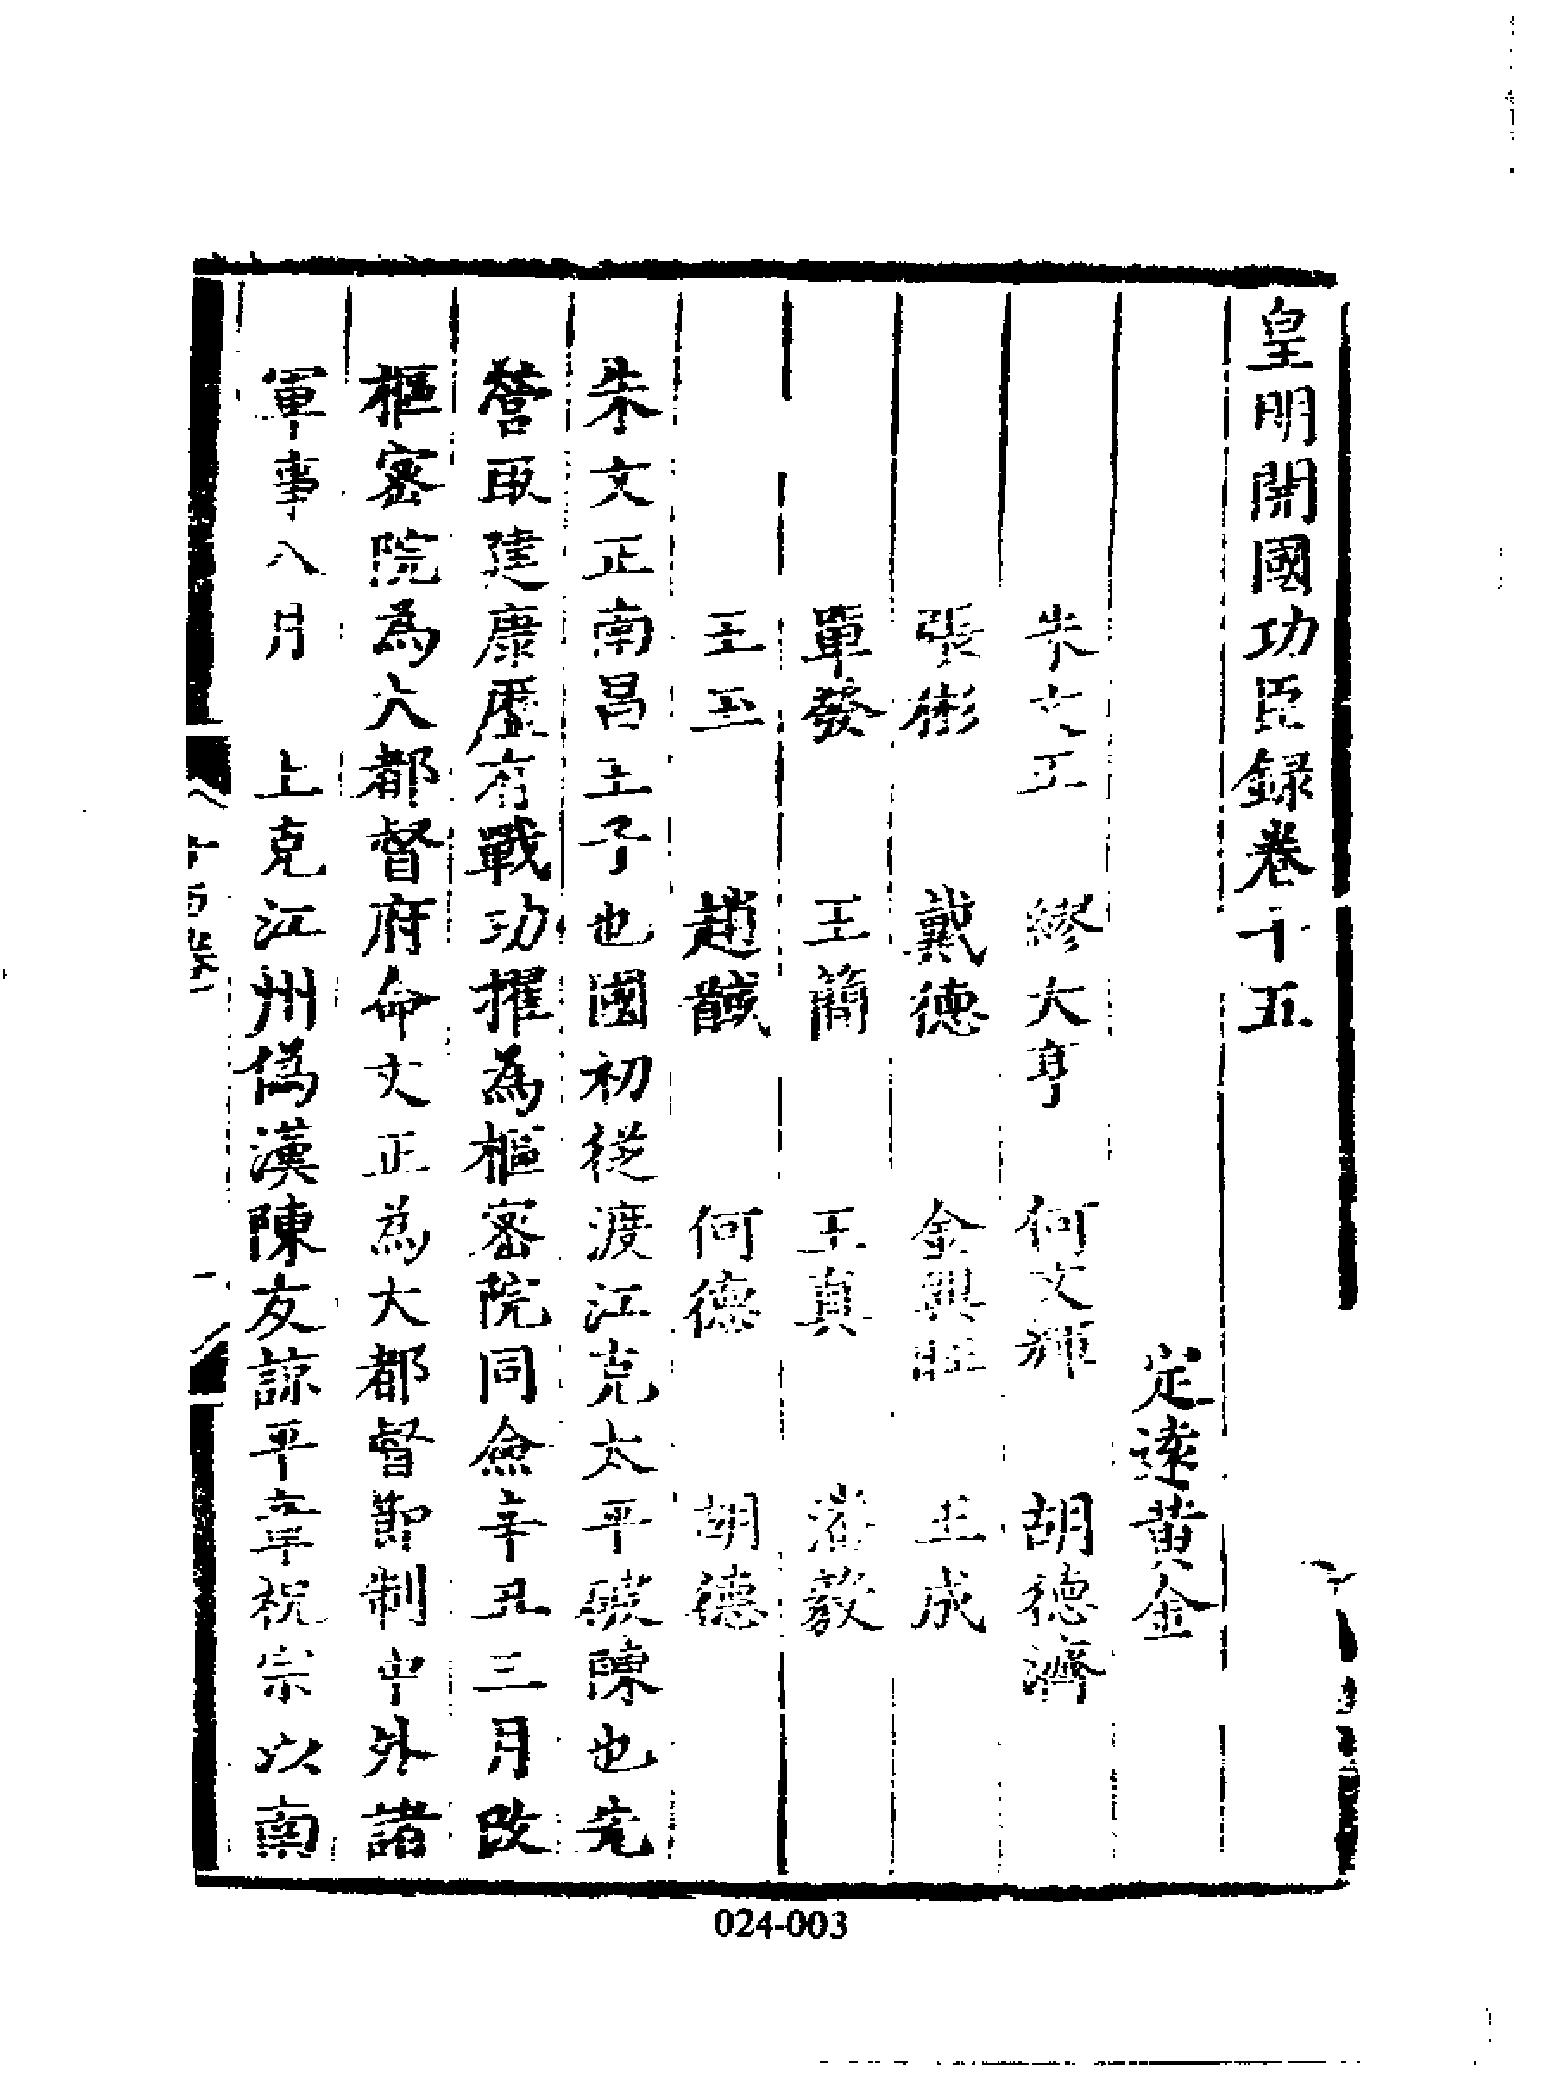 皇明開國功臣録卷十五
定遠黄金
朱文正 繆大亨 何文輝 胡德濟
張彬 戴德 金興旺 王成
單發 王簡 王真 潘毅
王玉 趙馘 何德 胡德
朱文正南昌王子也國初從渡江克太平破陳也先
營取建康歷有戰功擢為樞密院同僉辛丑三月改
樞密院為大都督府命文正為大都督節制中外諸
軍事八月 上克江州偽漢陳友諒平章祝宗以南
024-003